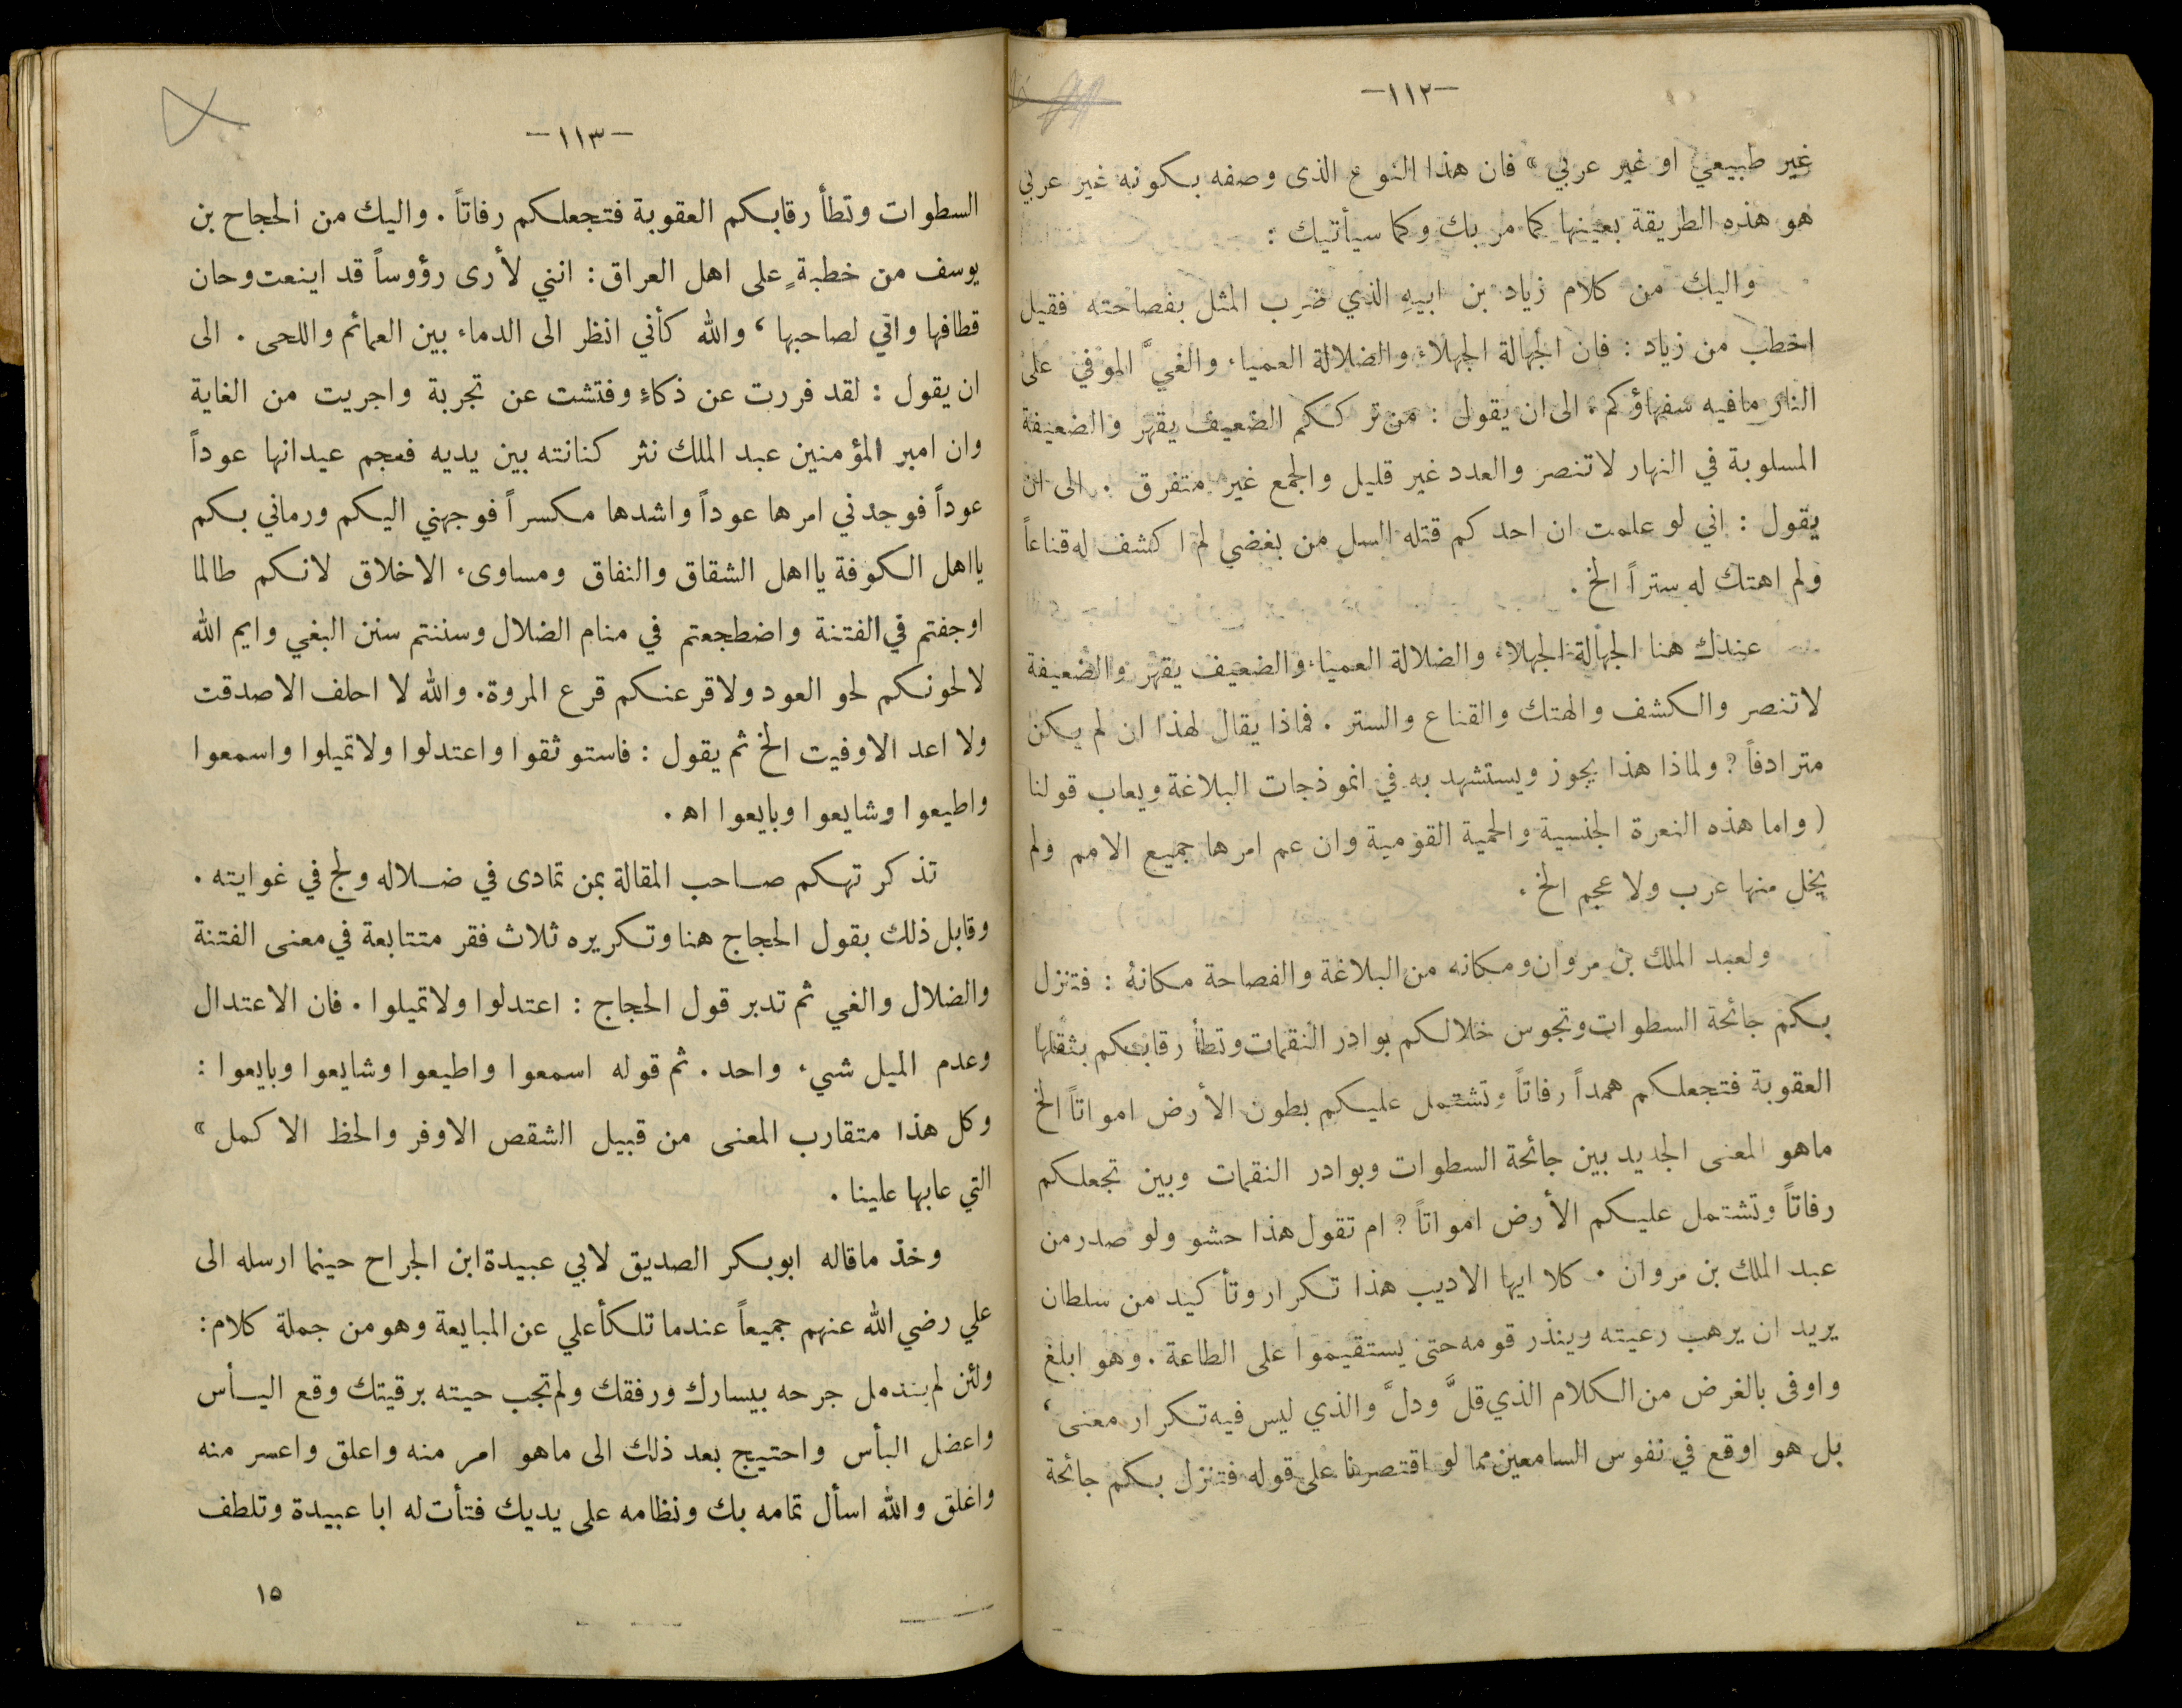 -١١٢-
غير طبيعي او غير عربي» فان هذا النوع الذى وصفه بكونه غير عربي
هو هذه الطريقة بعينها كما مر بك وكما سيأتيك :
واليك من كلام زياد بن ابيهِ الذي ضرب المثل بفصاحته فقيل
اخطب من زياد : فان الجهالة الجهلاء والضلالة العمياء والغيَّ الموفي على
النار مافيه سفهاؤكم. الى ان يقول : من ترككم الضعيف يقهر والضعيفة
المسلوبة في النهار لاتنصر والعدد غير قليل والجمع غير متفرق . الى ان
يقول : اني لو علمت ان احدكم قتله السل من بغضي لم اكشف له قناعاً
ولم اهتك له ستراً الخ .
عندك هنا الجهالة الجهلاء والضلالة العمياء والضعيف يقهر والضعيفة
لاتنصر والكشف والهتك والقناع والستر . فماذا يقال لهذا ان لم يكن
مترادفاً ? ولماذا هذا يجوز ويستشهد به في انموذجات البلاغة ويعاب قولنا
( واما هذه النعرة الجنسية والحمية القومية وان عم امرها جميع الامم ولم
يخل منها عرب ولا عجم الخ .
ولعبد الملك بن مروان ومكانه من البلاغة والفصاحة مكانهُ : فتنزل
بكم جائحة السطوات وتجوس خلالكم بوادر النقمات وتطأ رقابكم بثقلها
العقوبة فتجعلكم همداً رفاتاً وتشتمل عليكم بطون الأرض امواتاً الخ
ماهو المعنى الجديد بين جائحة السطوات وبوادر النقمات وبين تجعلكم
رفاتاً وتشتمل عليكم الأرض امواتاً ? ام تقول هذا حشو ولو صدر من
عبد الملك بن مروان . كلا ايها الاديب هذا تكرار وتأكيد من سلطان
يريد ان يرهب رعيته وينذر قومه حتى يستقيموا على الطاعة . وهو ابلغ
واوفى بالغرض من الكلام الذي قلَّ ودلَّ والذي ليس فيه تكرار معنى ،
بل هو اوقع في نفوس السامعين مما لو اقتصرنا على قوله فتنزل بكم جائحة
-١١٣-
السطوات وتطأ رقابكم العقوبة فتجعلكم رفاتاً . واليك من الحجاج بن
يوسف من خطبةٍ على اهل العراق : انني لأرى رؤوساً قد اينعت وحان
قطافها واني لصاحبها ، والله كأني انظر الى الدماء بين العمائم واللحى . الى
ان يقول : لقد فررت عن ذكاءٍ وفتشت عن تجربة واجريت من الغاية
وان امير المؤمنين عبد الملك نثر كنانته بين يديه فعجم عيدانها عوداً
عوداً فوجدني امرها عوداً واشدها مكسراً فوجهني اليكم ورماني بكم
يااهل الكوفة يااهل الشقاق والنفاق ومساوىء الاخلاق لانكم طالما
اوجفتم في الفتنة واضطجعتم في منام الضلال وسننتم سنن البغي وايم الله
لالحونكم لحو العود ولاقرعنكم قرع المروة. والله لا احلف الا صدقت
ولا اعد الا وفيت الخ ثم يقول : فاستوثقوا واعتدلوا ولا تميلوا واسمعوا
واطيعوا وشايعوا وبايعوا اه .
تذكر تهكم صاحب المقالة بمن تمادى في ضلاله ولج في غوايته .
وقابل ذلك بقول الحجاج هنا وتكريره ثلاث فقر متتابعة في معنى الفتنة
والضلال والغي ثم تدبر قول الحجاج : اعتدلوا ولا تميلوا . فان الاعتدال
وعدم الميل شيء واحد . ثم قوله اسمعوا واطيعوا وشايعوا وبايعوا :
وكل هذا متقارب المعنى من قبيل الشقص الاوفر والحظ الاكمل »
التي عابها علينا .
وخذ ماقاله ابوبكر الصديق لابي عبيدة ابن الجراح حينما ارسله الى
علي رضي الله عنهم جميعاً عندما تلكأ علي عن المبايعة وهو من جملة كلام :
ولئن لم يندمل جرحه بيسارك ورفقك ولم تجب حيته برقيتك وقع اليأس
واعضل البأس واحتيج بعد ذلك الى ماهو امر منه واعلق واعسر منه
واغلق والله اسأل تمامه بك ونظامه على يديك فتأت له ابا عبيدة وتلطف
١٥